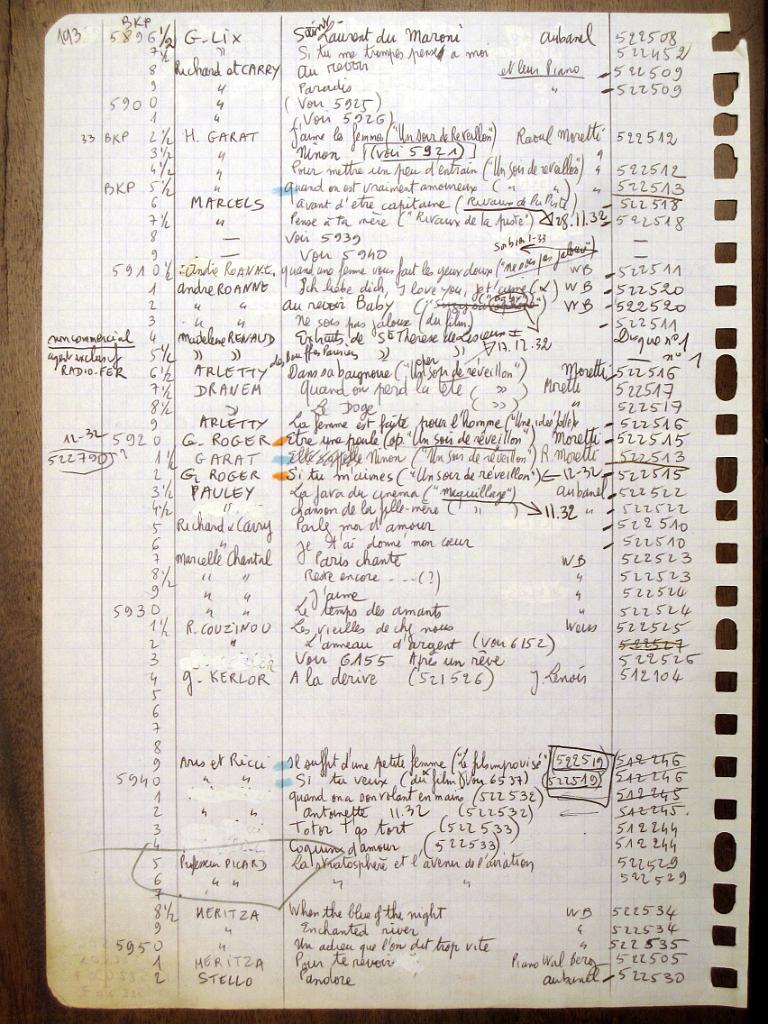 193 BKP
5896 1/2 G. Lix Saint-Laurent du Maroni aubanel 522508
7 1/2 " Si tu me trompes pense a moi 522452
8 Richard et CARRY Au revoir et leur Piano 522509
9 " Paradis " 522509
5900 " (Voir 5925)
1 " (Voir 5926)
33 BKP 2 1/2 H. GARAT J'aime les femmes ("Un Soir de Reveillon") Raoul Moretti 522512
3 1/2 " Ninon (Voir 5921) "
4 1/2 " Pour mettre un peu d'entrain ("Un Soir de reveillon") " 522512
BKP 5 1/2 " quand on est vraiment amoureux ( " " ) " 522513
6 MARCELS avant d'etre capitaine (Rivaux de la Piste) 522518
7 1/2 " Pense à ta mère ("Rivaux de la piste") 28.11.32 522518
8 — Voir 5939 —
9 — Voir 5940 —
5910 1/2 André ROANNE, quand une femme vous fait les yeux doux ("ne sois pas jaloux") WB 522511
1 andré ROANNE Ich liebe dich, I love you, je t'aime WB 522520
2 " " au revoir Baby WB 522520
3 " " Ne sois pas jaloux (du film) 522511
non commercial 4 Madeleine RENAUD Extraits de Ste Thérèse de Lisieux I Disque n°1
agent exclusif 5 1/2 " " " " 17.12.32 n° 1
RADIO-FER 6 1/2 ARLETTY Dans sa baignoire (oper "Un soir de réveillon") Moretti 522516
7 1/2 DRANEM Quand on perd la tête ( " ) Moretti 522517
8 1/2 " Le Doge ( " ) 522517
9 ARLETTY La femme est faite pour l'homme 522516
12-32 5920 G. ROGER Etre une poule (op. "Un Soir de réveillon") Moretti 522515
522790 ? 1 1/2 GARAT Ninon ("Un Soir de réveillon") R. Moretti 522513
2 G. ROGER Si tu m'aimes ("Un soir de réveillon") 12-32 522515
3 1/2 PAULEY La java du cinema ("Maquillage") aubanel 522522
4 1/2 " chanson de la fille-mère ( " ) 11.32 " 522522
5 Richard et Carry Parle moi d'amour 522510
6 " Je t'ai donné mon coeur 522510
7 Marcelle Chantal Paris chante WB 522523
8 1/2 " " Reste encore ....(?) " 522523
9 " " J'aime " 522524
5930 " " Le temps des amants " 522524
1 1/2 R. COUZINOU Les vieilles de chez nous 522525
2 " L'anneau d'argent (Voir 6152) 522527
3 Voir 6155 Après un rêve 522526
4 G. KERLOR A la derive (521526) J. Lenoir 512104
5
6
7
8
9 Aris et Ricci Il suffit d'une petite femme ("Le fils improvisé") 522519 512246
5940 " " Si tu veux (du film) Voir 6537) 522519 512246
1 quand on a son volant en mains (522532) 512245
2 " " antoinette 11.32 (522532) 512245.
3 Totor T'as tort (522533) 512244
4 Coquins d'amour (522533) 512244
5 Professeur PICARD La stratosphère et l'avenir de l'aviation 522529
6 " " " " 522529
7
8 1/2 MERITZA When the blue of the night WB 522534
9 " Enchanted river " 522534
5950 " Un adieu que l'on dit trop vite " 522535
1 MERITZA Pour te revoir Piano Wal Berg 522505
2 STELLO Pandore aubanel 522530